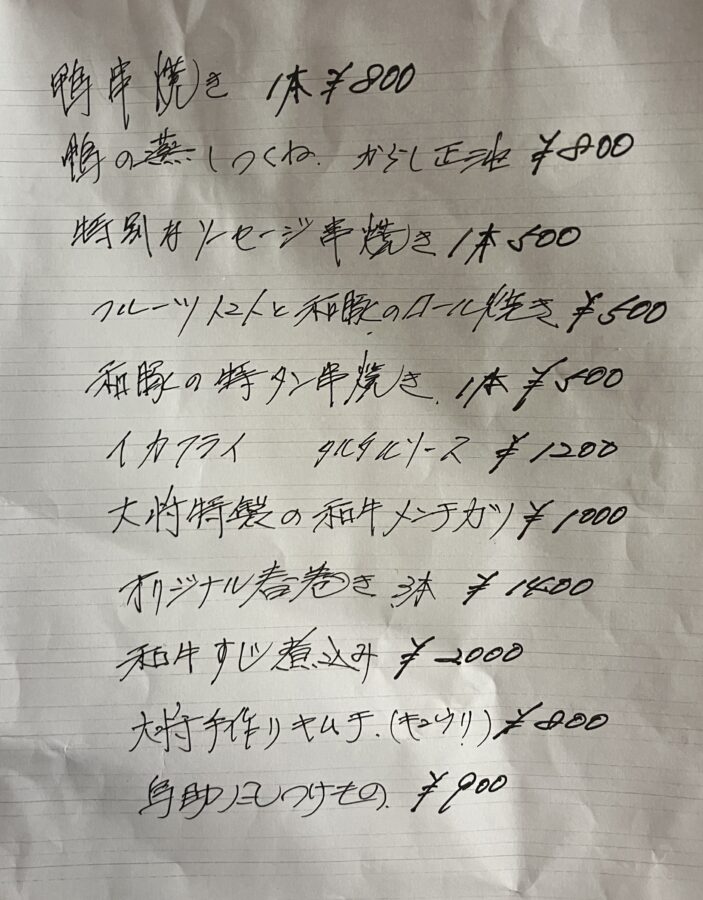 鴨串焼き 1本 ¥800
鴨の蒸しつくね. からし正油 ¥800
特別なソーセージ串焼き 1本 500
フルーツトマトと和豚のロール焼き ¥500
和豚の特タン串焼き. 1本 ¥500
イカフライ タルタルソース ¥1200
大将特製の和牛メンチカツ ¥1000
オリジナル春巻き 3本 ¥1400
和牛すじ煮込み ¥2000
大将手作りキムチ.(キュウリ) ¥800
鳥助 つけもの. ¥900